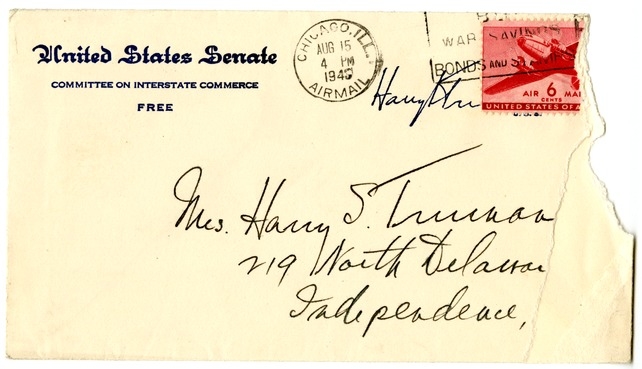 United States Senate
COMMITTEE ON INTERSTATE COMMERCE
FREE
CHICAGO, ILL.
AUG 15
4 PM
AIRMAIL
WAR SAVINGS
BONDS AND
AIR 6 MAI
CENTS
UNITED STATES OF A
U.S.S.
Harry
Mrs. Harry S. Truman
219 North Delawar
Independence,